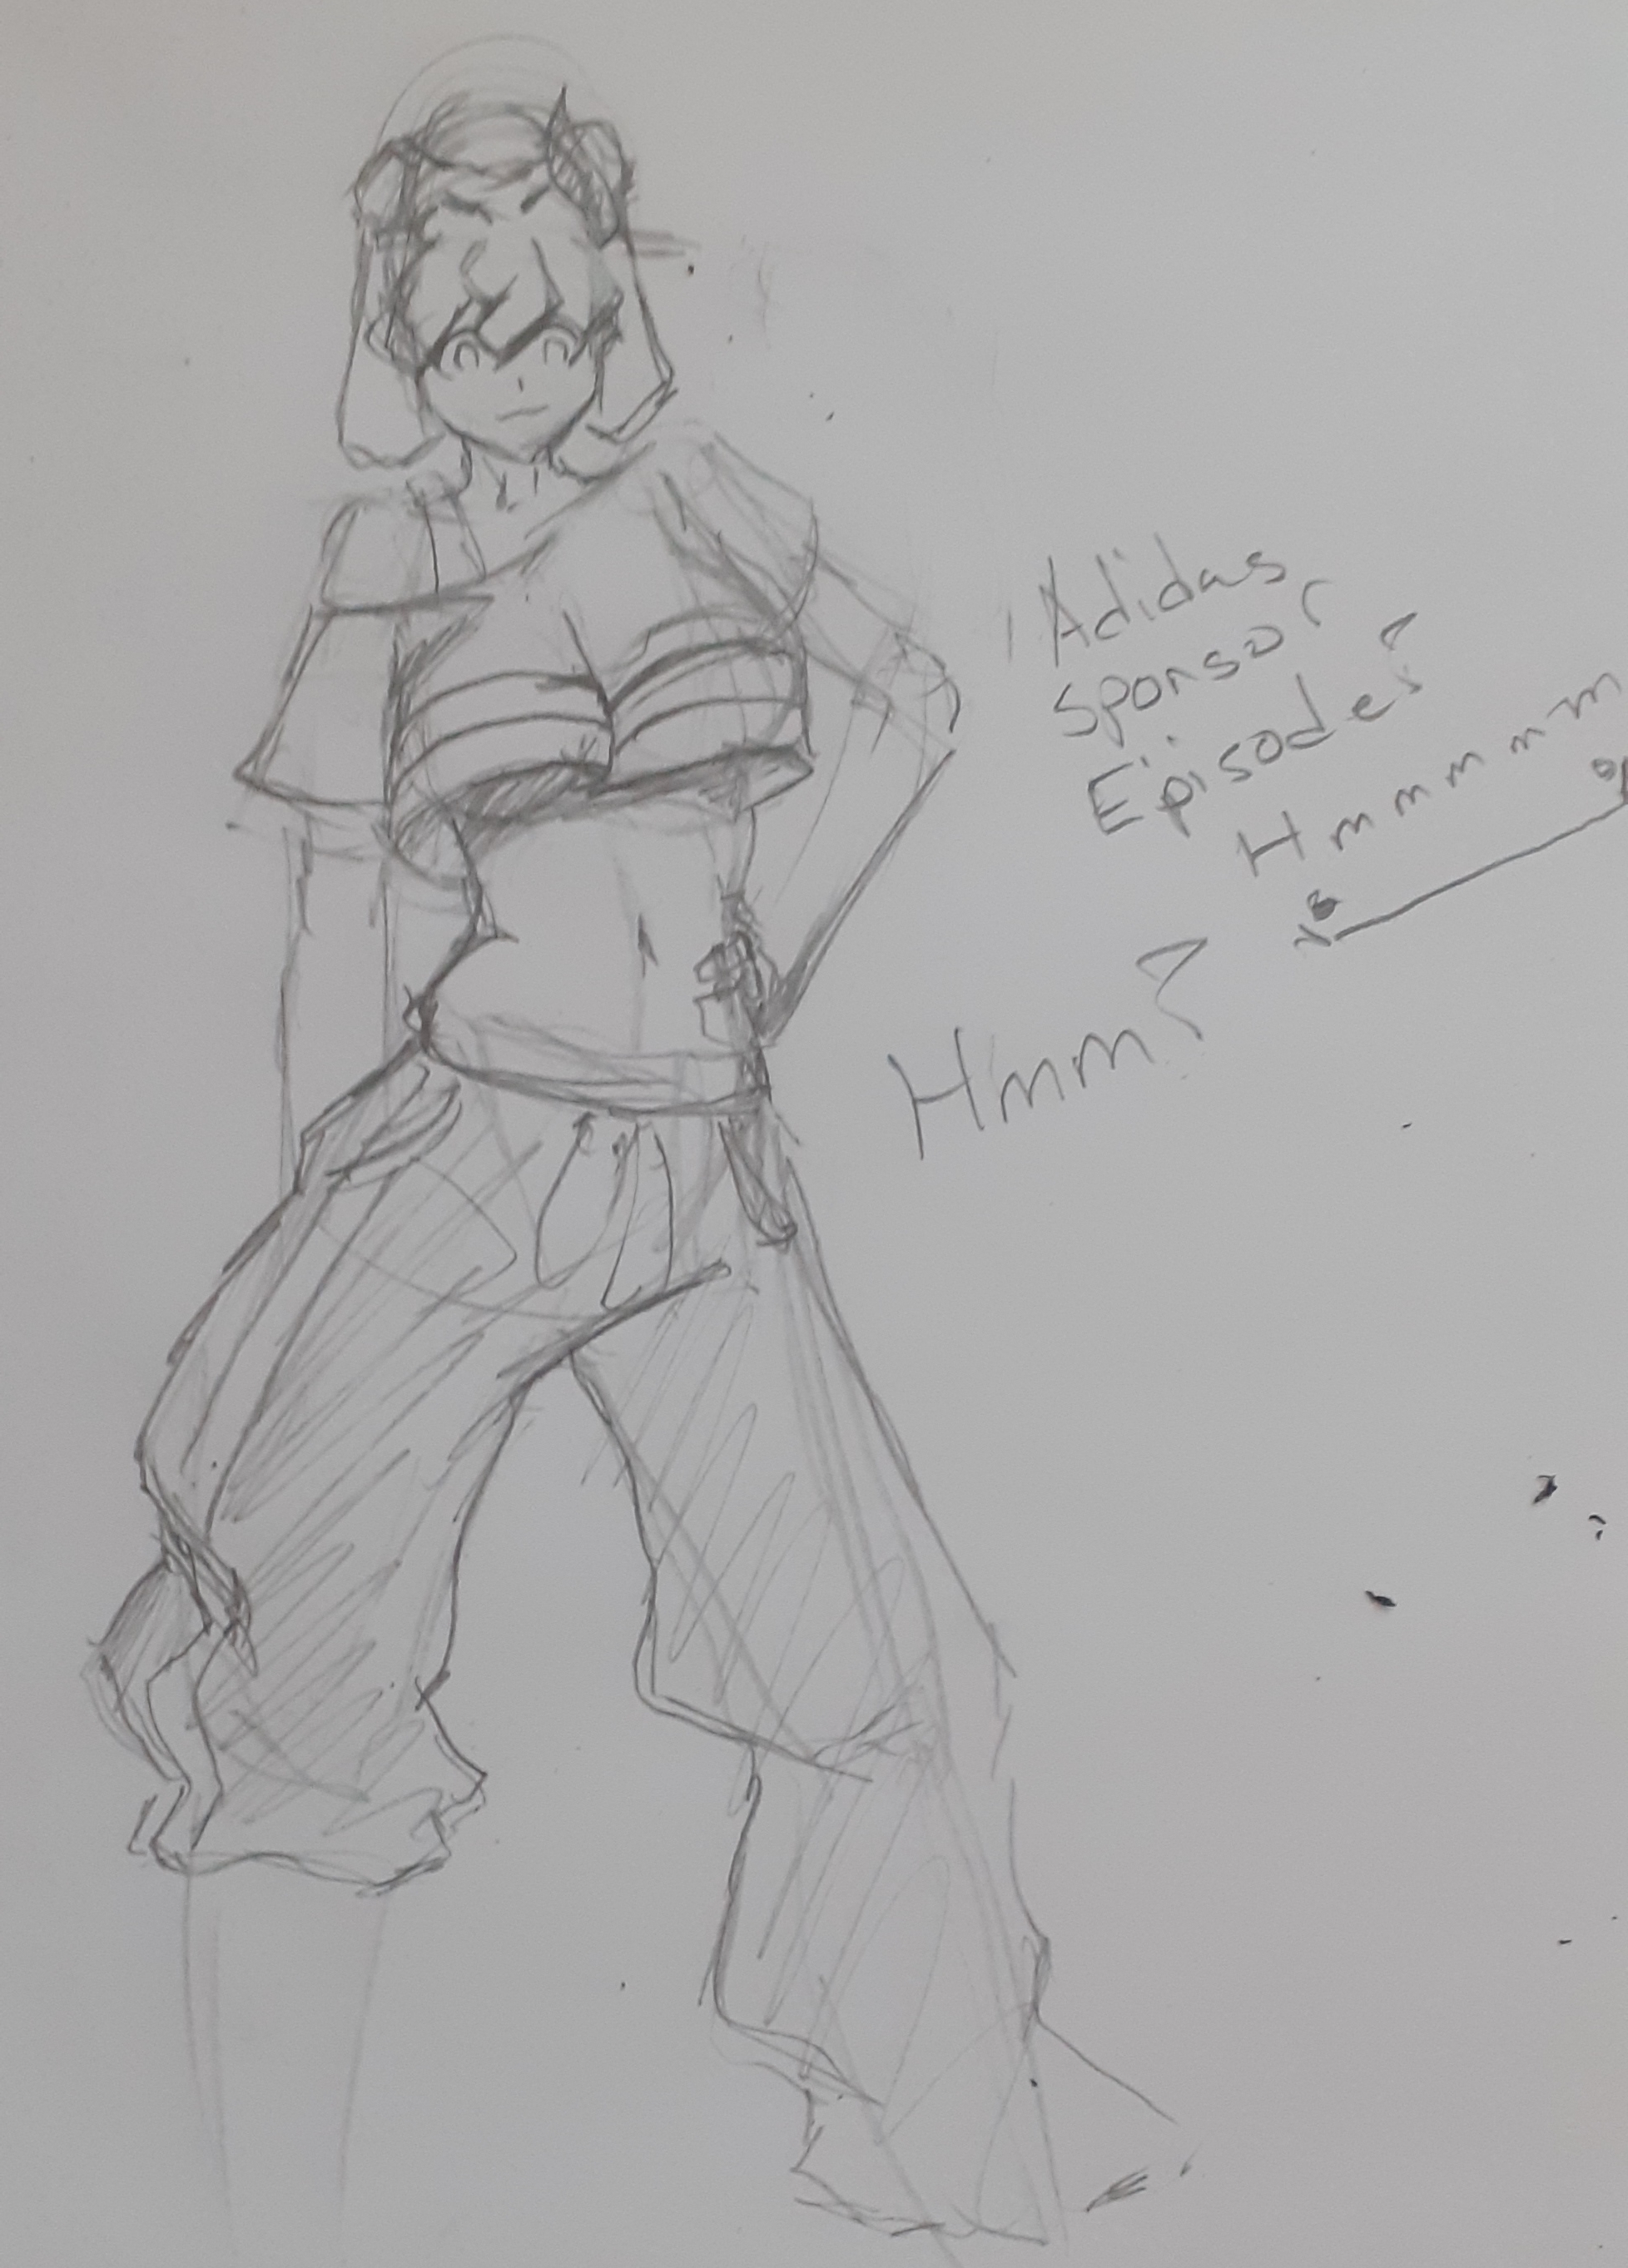 Adidas
sponsor
Episode?
Hmmmmmm
Hmm?